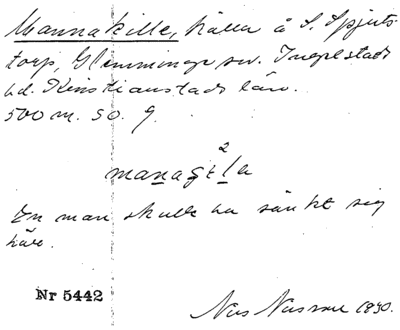 Mannakille, källa å S. Spjuts
torp, Glemminge sn. Ingelstads
hd. Kristianstads län.
500 m. SO. g.
2
managtla
En man skulle ha sänkt sig
häri.
Nr 5442
Nils 1930.